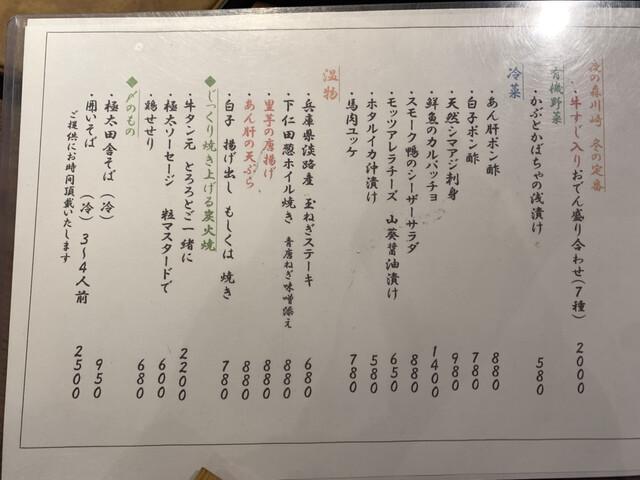 夜の森川崎 冬の定番
・牛すじ入りおでん盛り合わせ(7種) 2000
有機野菜
・かぶとかぼちゃの浅漬け 580
冷菜
・あん肝ポン酢 880
・白子ポン酢 780
・天然シマアジ刺身 980
・鮮魚のカルパッチョ 1400
・スモーク鴨のシーザーサラダ 880
・モッツアレラチーズ 山葵醤油漬け 650
・ホタルイカ沖漬け 580
・馬肉ユッケ 780
温物
・兵庫県淡路産 玉ねぎステーキ 680
・下仁田葱ホイル焼き 青唐ねぎ味噌添え 880
・里芋の唐揚げ 880
・あん肝の天ぷら 880
・白子 揚げ出し もしくは 焼き 780
◆じっくり焼き上げる炭火焼
・牛タン元 とろろとご一緒に 2200
・極太ソーセージ 粒マスタードで 600
・鶏せせり 680
◆〆のもの
・極太田舎そば (冷) 950
・囲いそば (冷) 3〜4人前 2500
ご提供にお時間頂戴いたします